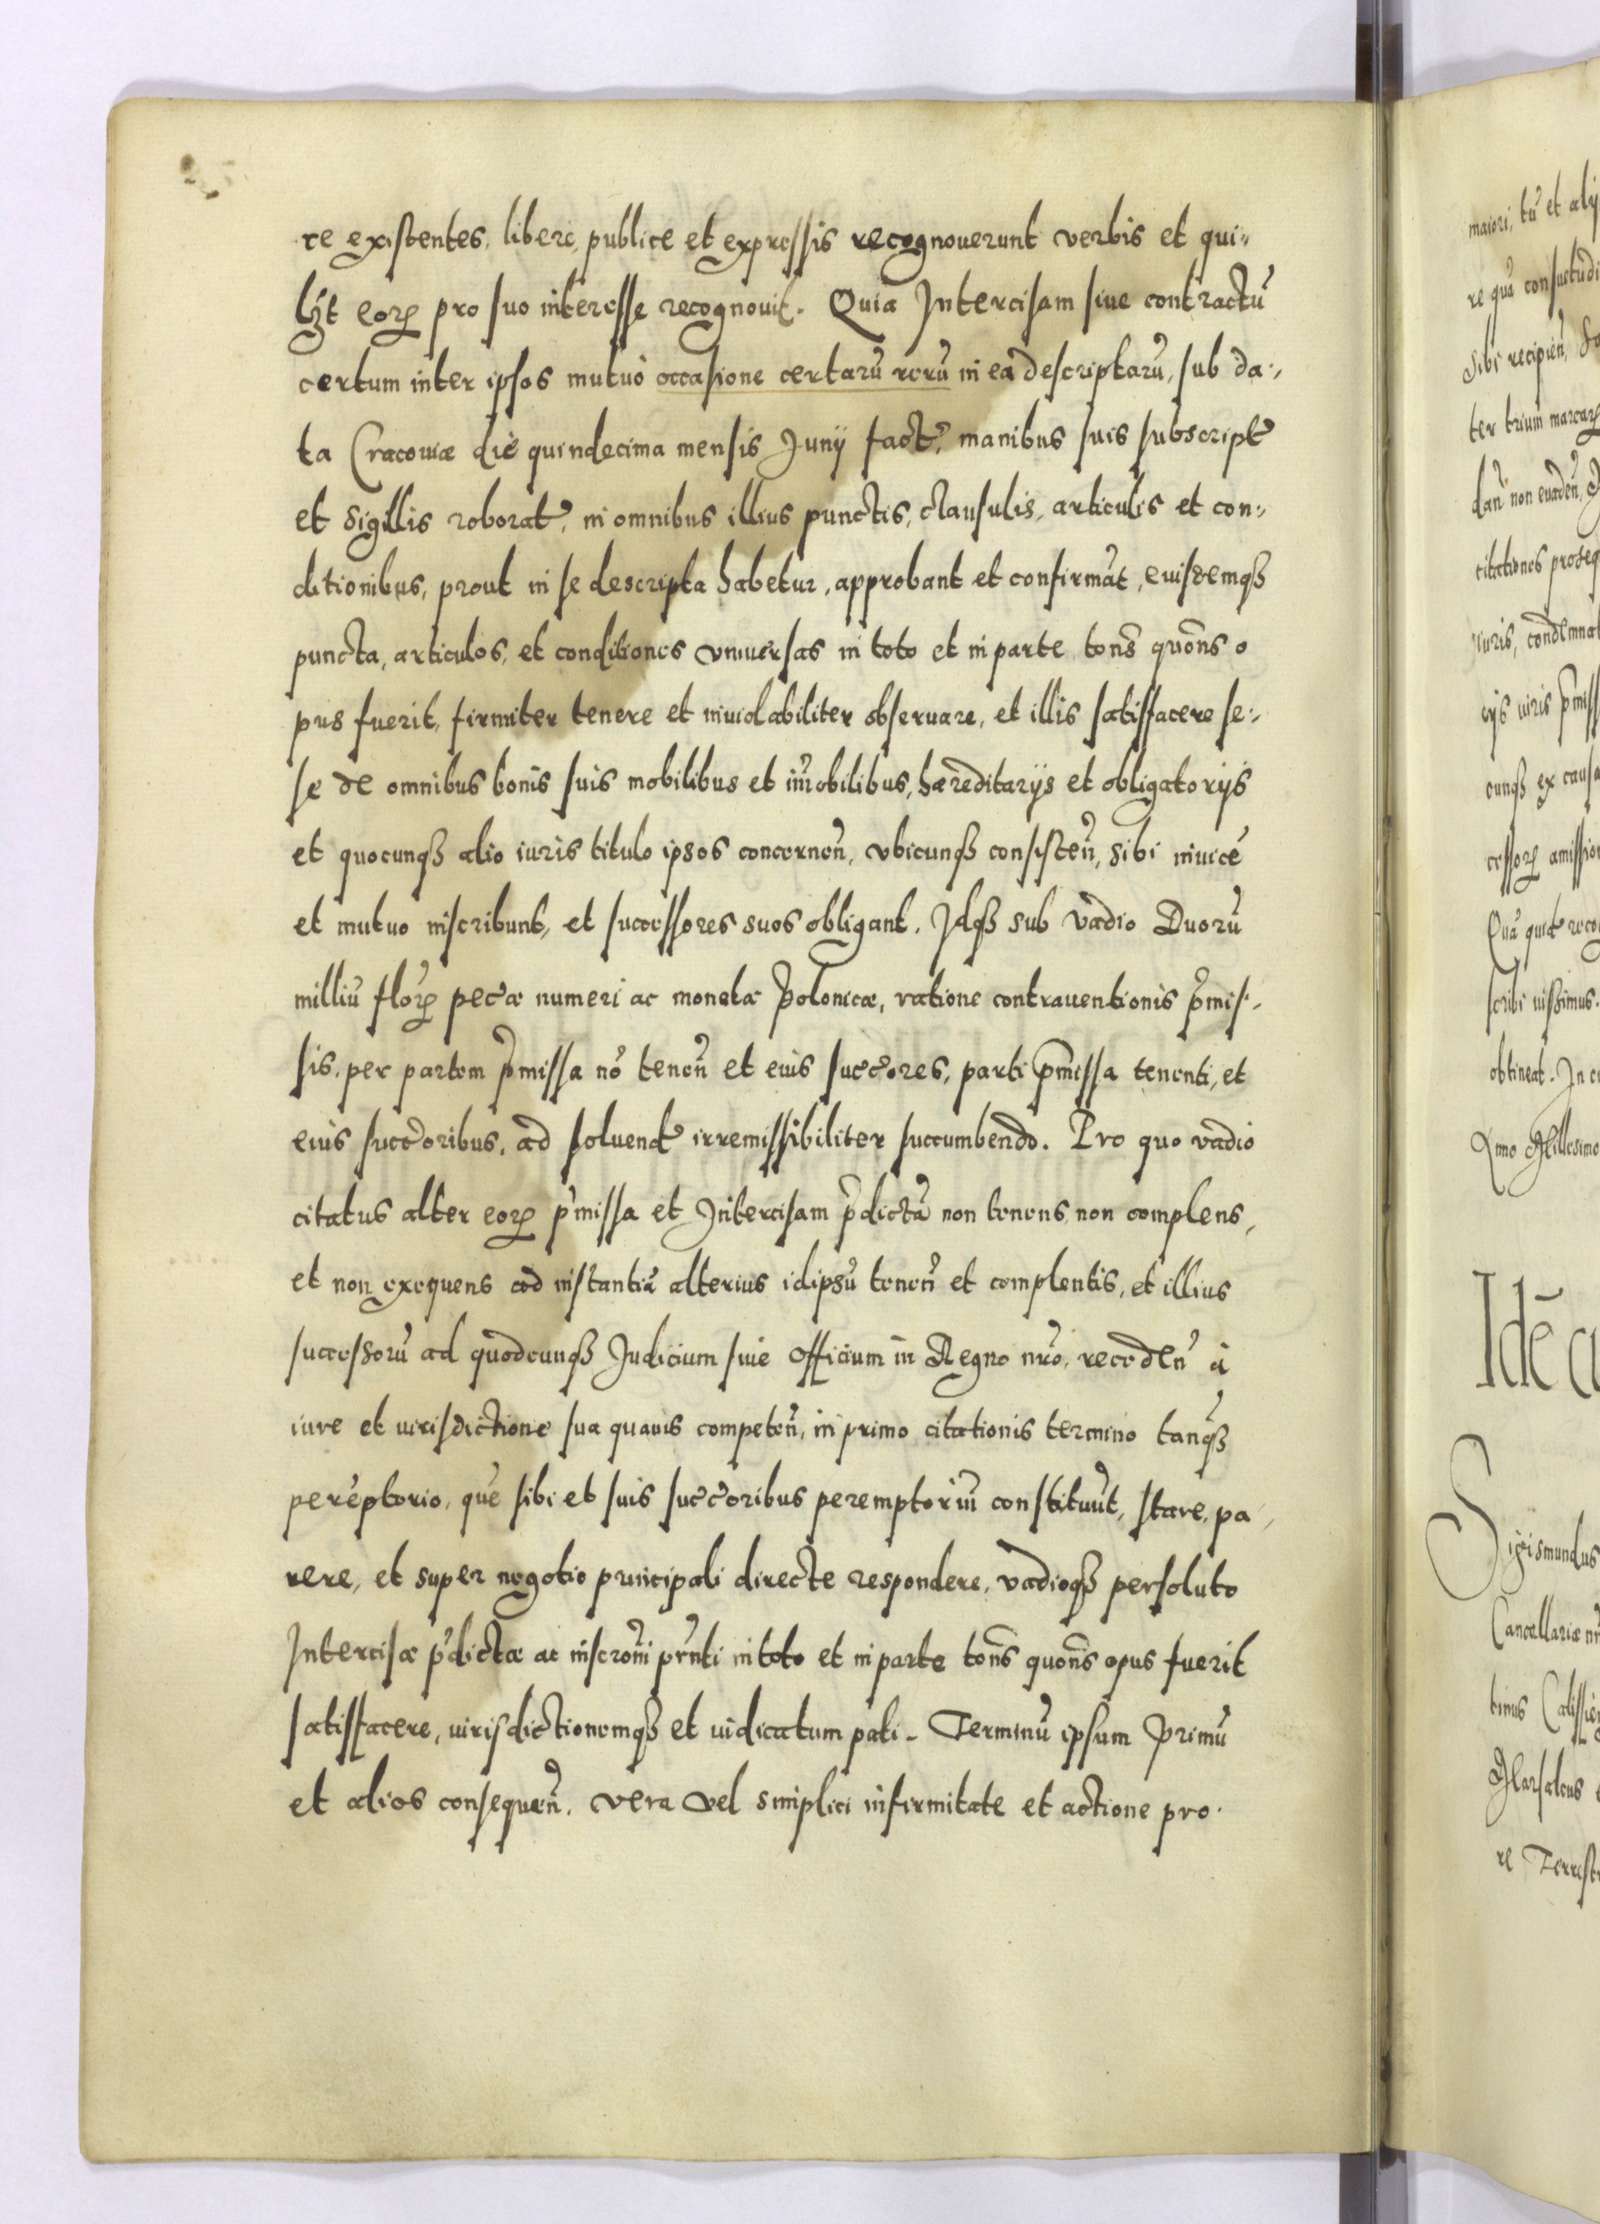 re existentes, libere, publice et expressis recognouerunt verbis et qui-
lꝫt eoꝝ pro suo interesse recognouit. Quia Intercisam siue contractū
certum inter ipsos mutuò occasione certarū rerū in ea descriptarū, sub da-
ta Cracouiæ die quindecima mensis Junij fact̃, manibus suis subscript̃
et sigillis roborat̃, in omnibus illius punctis, clausulis, articulis et con-
ditionibus, prout in se descripta habetur, approbant et confirmāt, euisdemqꝫ
puncta, articulos, et conditiones vniuersas in toto et in parte tōns quōns o
pus fuerit, firmiter tenere et inuiolabiliter obseruare, et illis satisfacere se-
se de omnibus bonis suis mobilibus et im̄obilibus, hæreditarijs et obligatorijs
et quocunqꝫ alio iuris titulo ipsos concernen̄, vbicunqꝫ consisten̄, sibi inuicē
et mutuo inscribunt, et successores suos obligant. Idqꝫ sub vadio Duorū
milliū floꝝ pecæ numeri ac monetæ Polonicæ, ratione contrauentionis p̄mis-
sis, per partem p̄missa nō tenen̄ et eius succ̄ores, parti p̄missa tenenti, et
eius succ̄oribus, ad soluend̃ irremissibiliter succumbendo. Pro quo vadio
citatus alter eoꝝ p̄missa et Intercisam p̄dictā non tenens non complens,
et non exequens ad instantiā alterius idipsū tenen̄ et complentis, et illius
successorū ad quodcunqꝫ Judicium siue Officium in Regno nr̄o, receden̄ à
iure et iurisdictione sua quauis competen̄, in primo citationis termino tanqꝫ
perēptorio, quē sibi et suis succ̄oribus peremptoriū constituūt, stare, pa-
rere, et super negotio principali directe respondere, vadioqꝫ persoluto
Intercisæ p̄dictæ ac inscr̄oni pr̄nti in toto et in parte tōns quōns opus fuerit
satisfacere, iurisdictionemqꝫ et iudicatum pati. Terminū ipsum primū
et alios consequen̄. vera vel simplici infirmitate et actione pro-
maiori, tū et alij
re quā consuetudi
sibi recipien̄,
ter trium marcaꝝ
dan̄ non euaden̄,
citationes proseq
iuris, condemnat
eijs iuris p̄miss
cunqꝫ ex causa
cessoꝝ amission
scribi iussimus.
obtineat. In
Millesimo
Idē
Sigismundus
Cancellariæ
Marsalcus
re Terrest